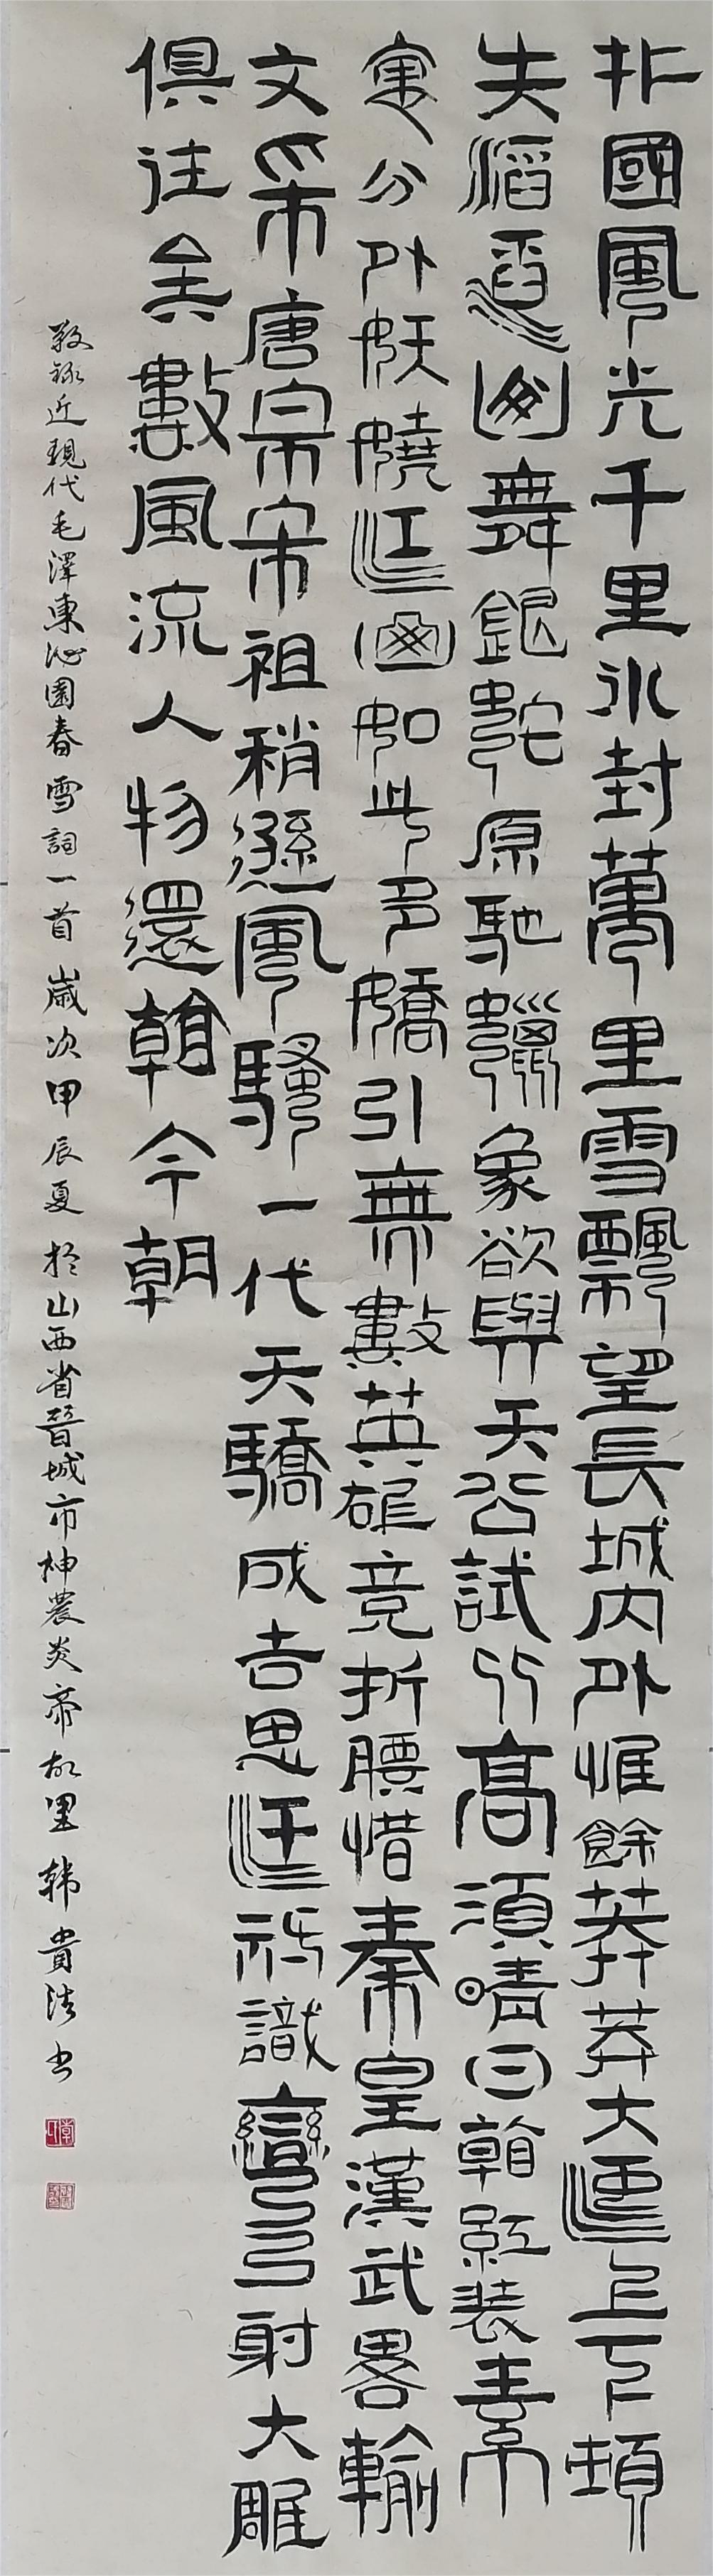 北國風光千里冰封萬里雪飄望長城内外惟餘莽莽大河上下頓
失滔滔山舞銀蛇原馳蠟象欲與天公試比高須晴日看紅裝素
裹分外妖嬈江山如此多嬌引無數英雄竞折腰惜秦皇漢武畧輸
文采唐宗宋祖稍遜風騷一代天驕成吉思汗衹識彎弓射大雕
俱往矣數風流人物還看今朝
敬録近現代毛澤東沁園春雪詞一首 歲次甲辰夏 於山西省晉城市神農炎帝故里 韩貴书